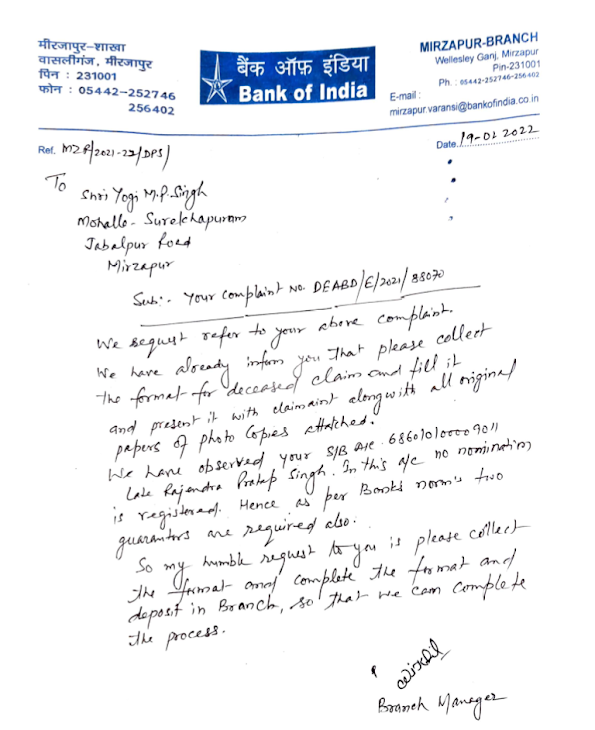 मीरजापुर-शाखा
वासलीगंज, मीरजापुर
पिन : 231001
फोन : 05442-252746
256402
बैंक ऑफ़ इंडिया
Bank of India
MIRZAPUR-BRANCH
Wellesley Ganj, Mirzapur
Pin-231001
Ph. : 05442-252746-256402
E-mail :
mirzapur.varansi@bankofindia.co.in
Ref. MZP/2021-22/DPS/
Date. 19-01 2022
To
Shri Yogi M.P. Singh
Mohalla - Surekhapuram
Jabalpur Road
Mirzapur
Sub:- Your Complaint No. DEABD/E/2021/88070
We request refer to your above complaint.
We have already inform you that please collect
the format for deceased claim and fill it
and present it with claimaint alongwith all original
papers of photo copies attatched.
We have observed your S/B A/c
Late Rajendra Pratap Singh. In this a/c no nomination
is registered. Hence as per Bank's norm's two
guarantors are required also.
So my humble request to you is please collect
the format and complete the format and
deposit in Branch, so that we can complete
the process.
Branch Manager